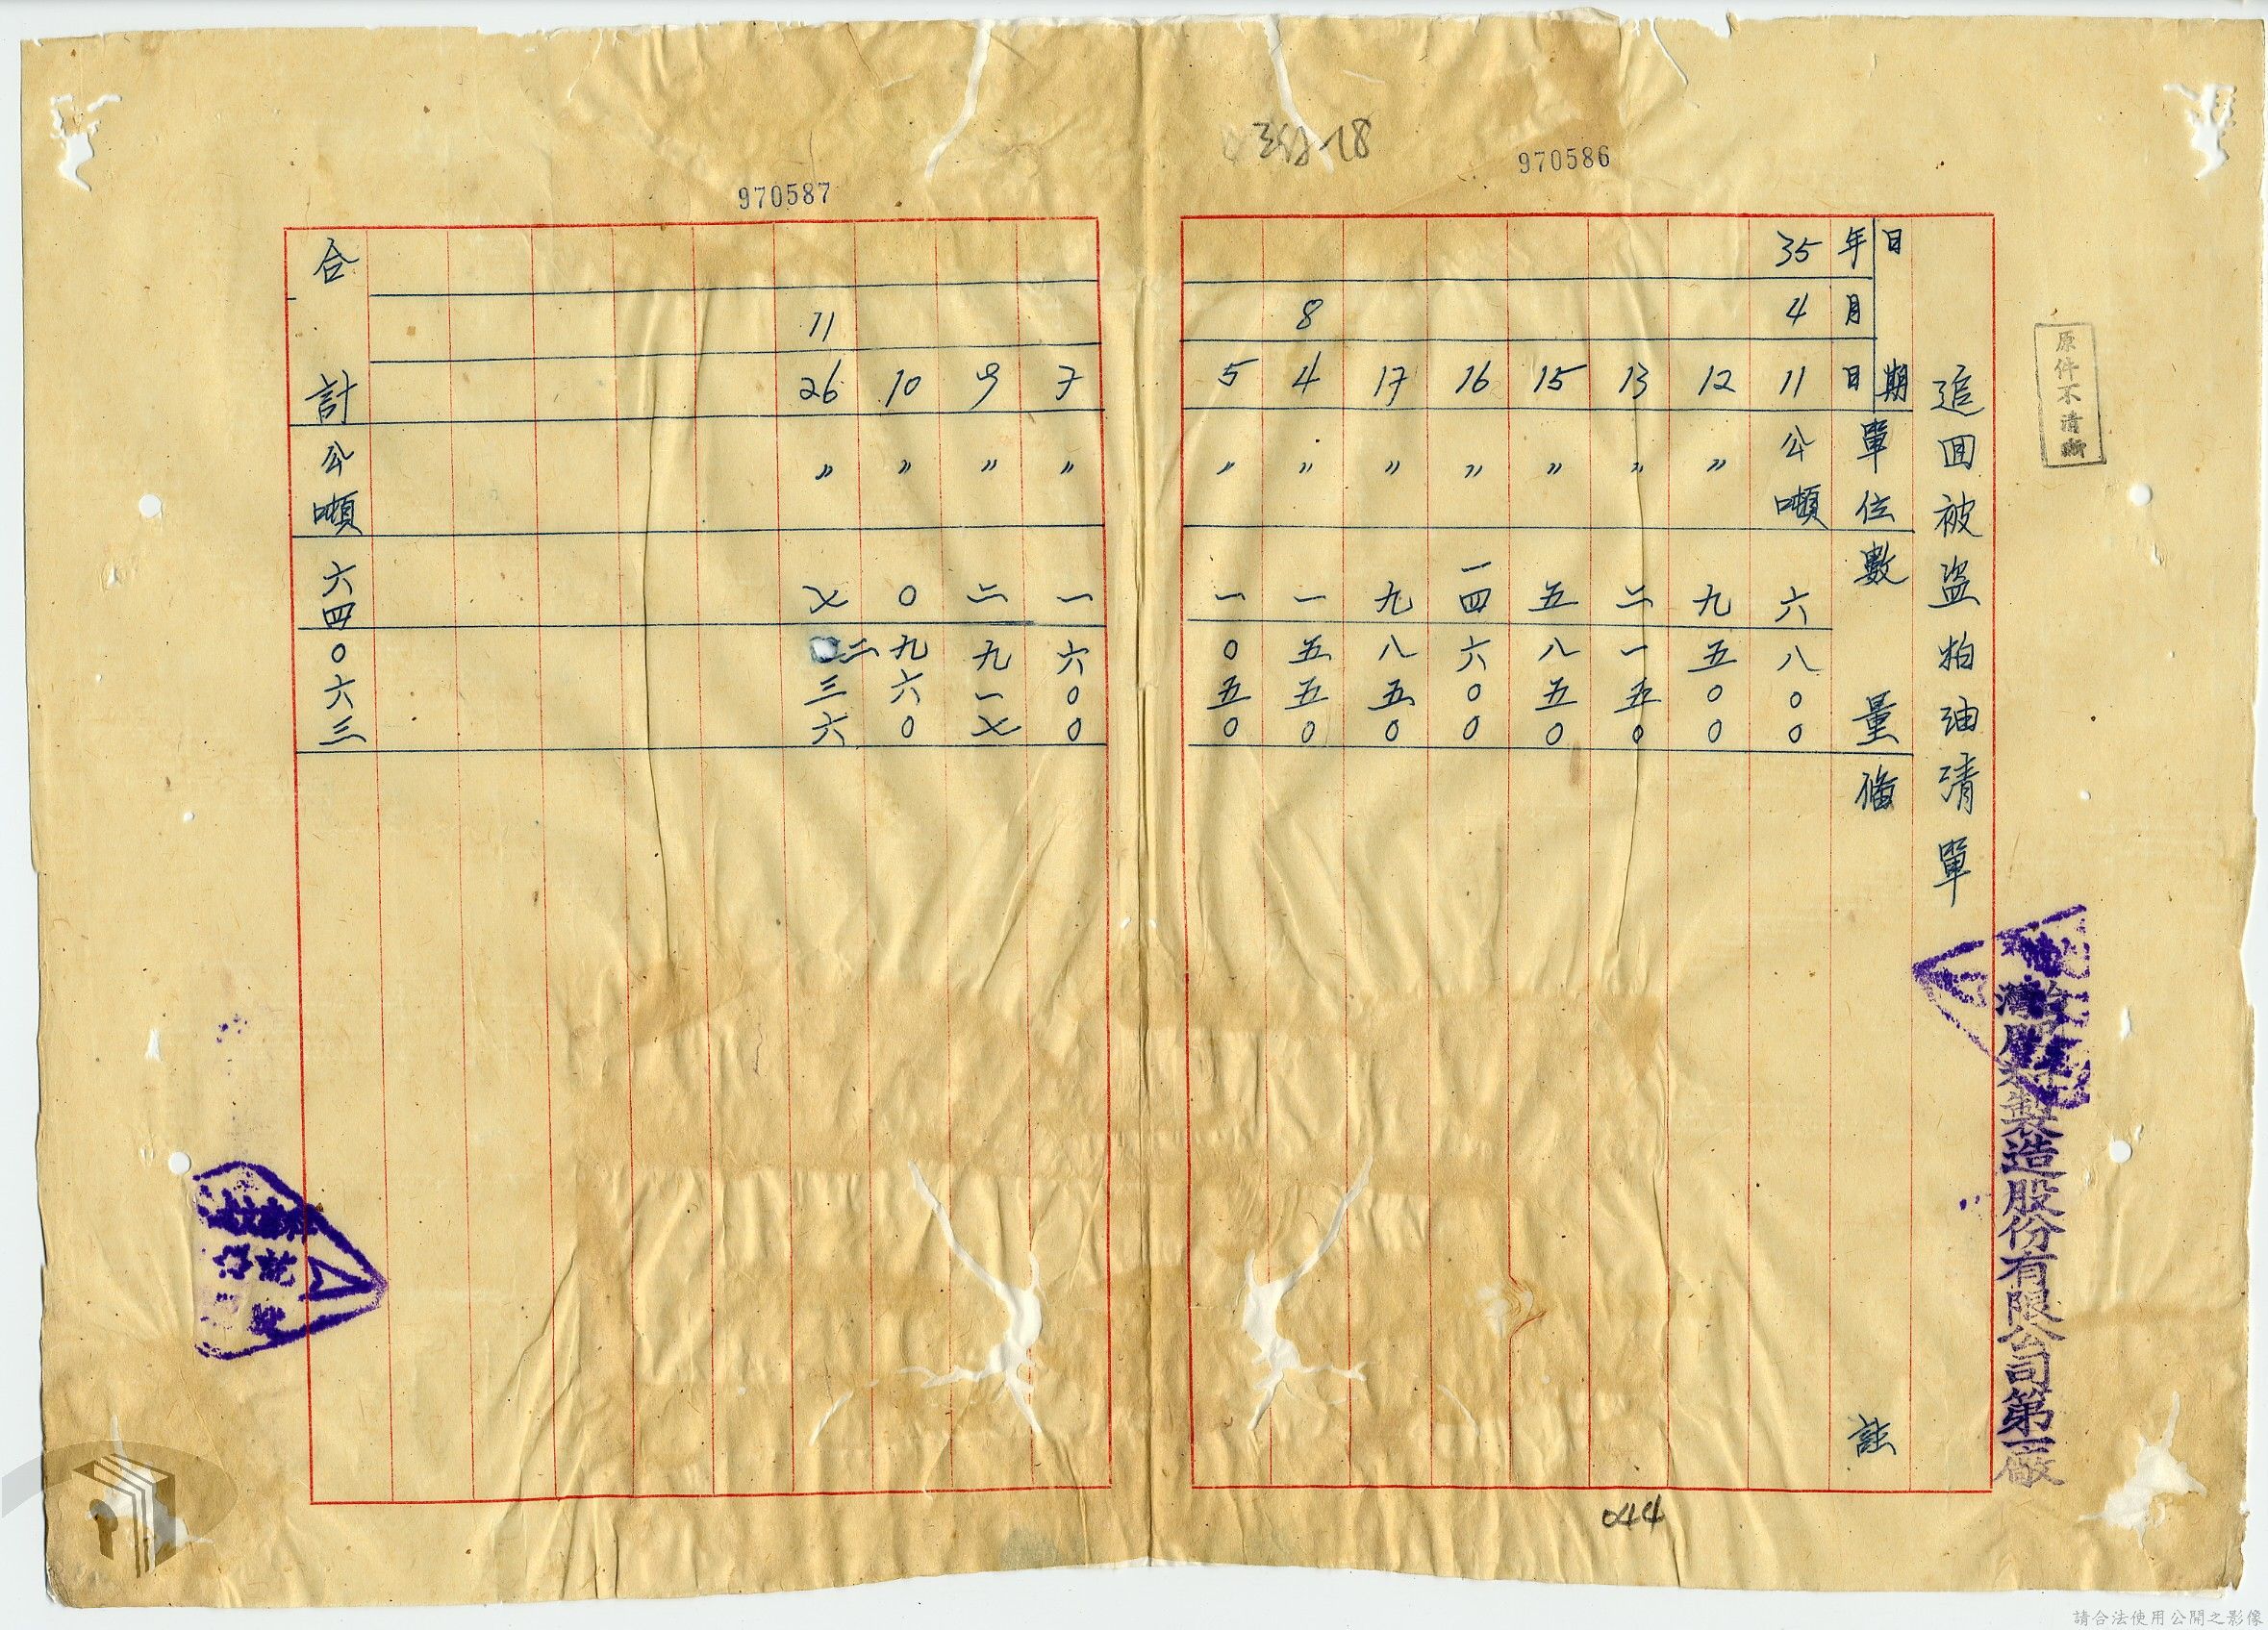 原件不清晰
970586
970587
製造股份有限公司第
追回被盜柏油清單
日期 年月日 單位 數量 備註
35 4 11 公噸 六八〇〇
12 〃 九五〇〇
13 〃 二一五〇
15 〃 五八五〇
16 〃 一四六〇〇
17 〃 九八五〇
8 4 〃 一五五〇
5 〃 一〇五〇
7 〃 一六〇〇
9 〃 二九一七
10 〃 〇九六〇
11 26 〃 七二三六
合計 公噸 六四〇六三
044
請合法使用公開之影像